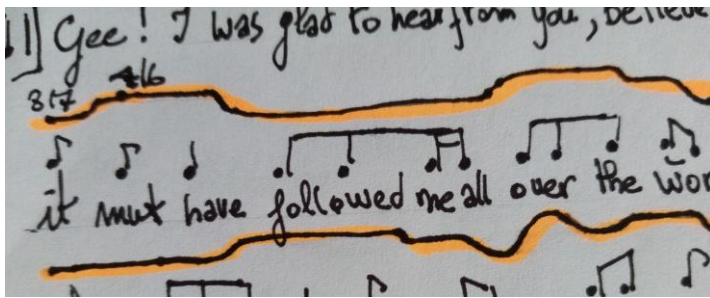 11] Gee! I was glad to hear from you, believe
8 1 7 4 1 6
it must have followed me all over the wor